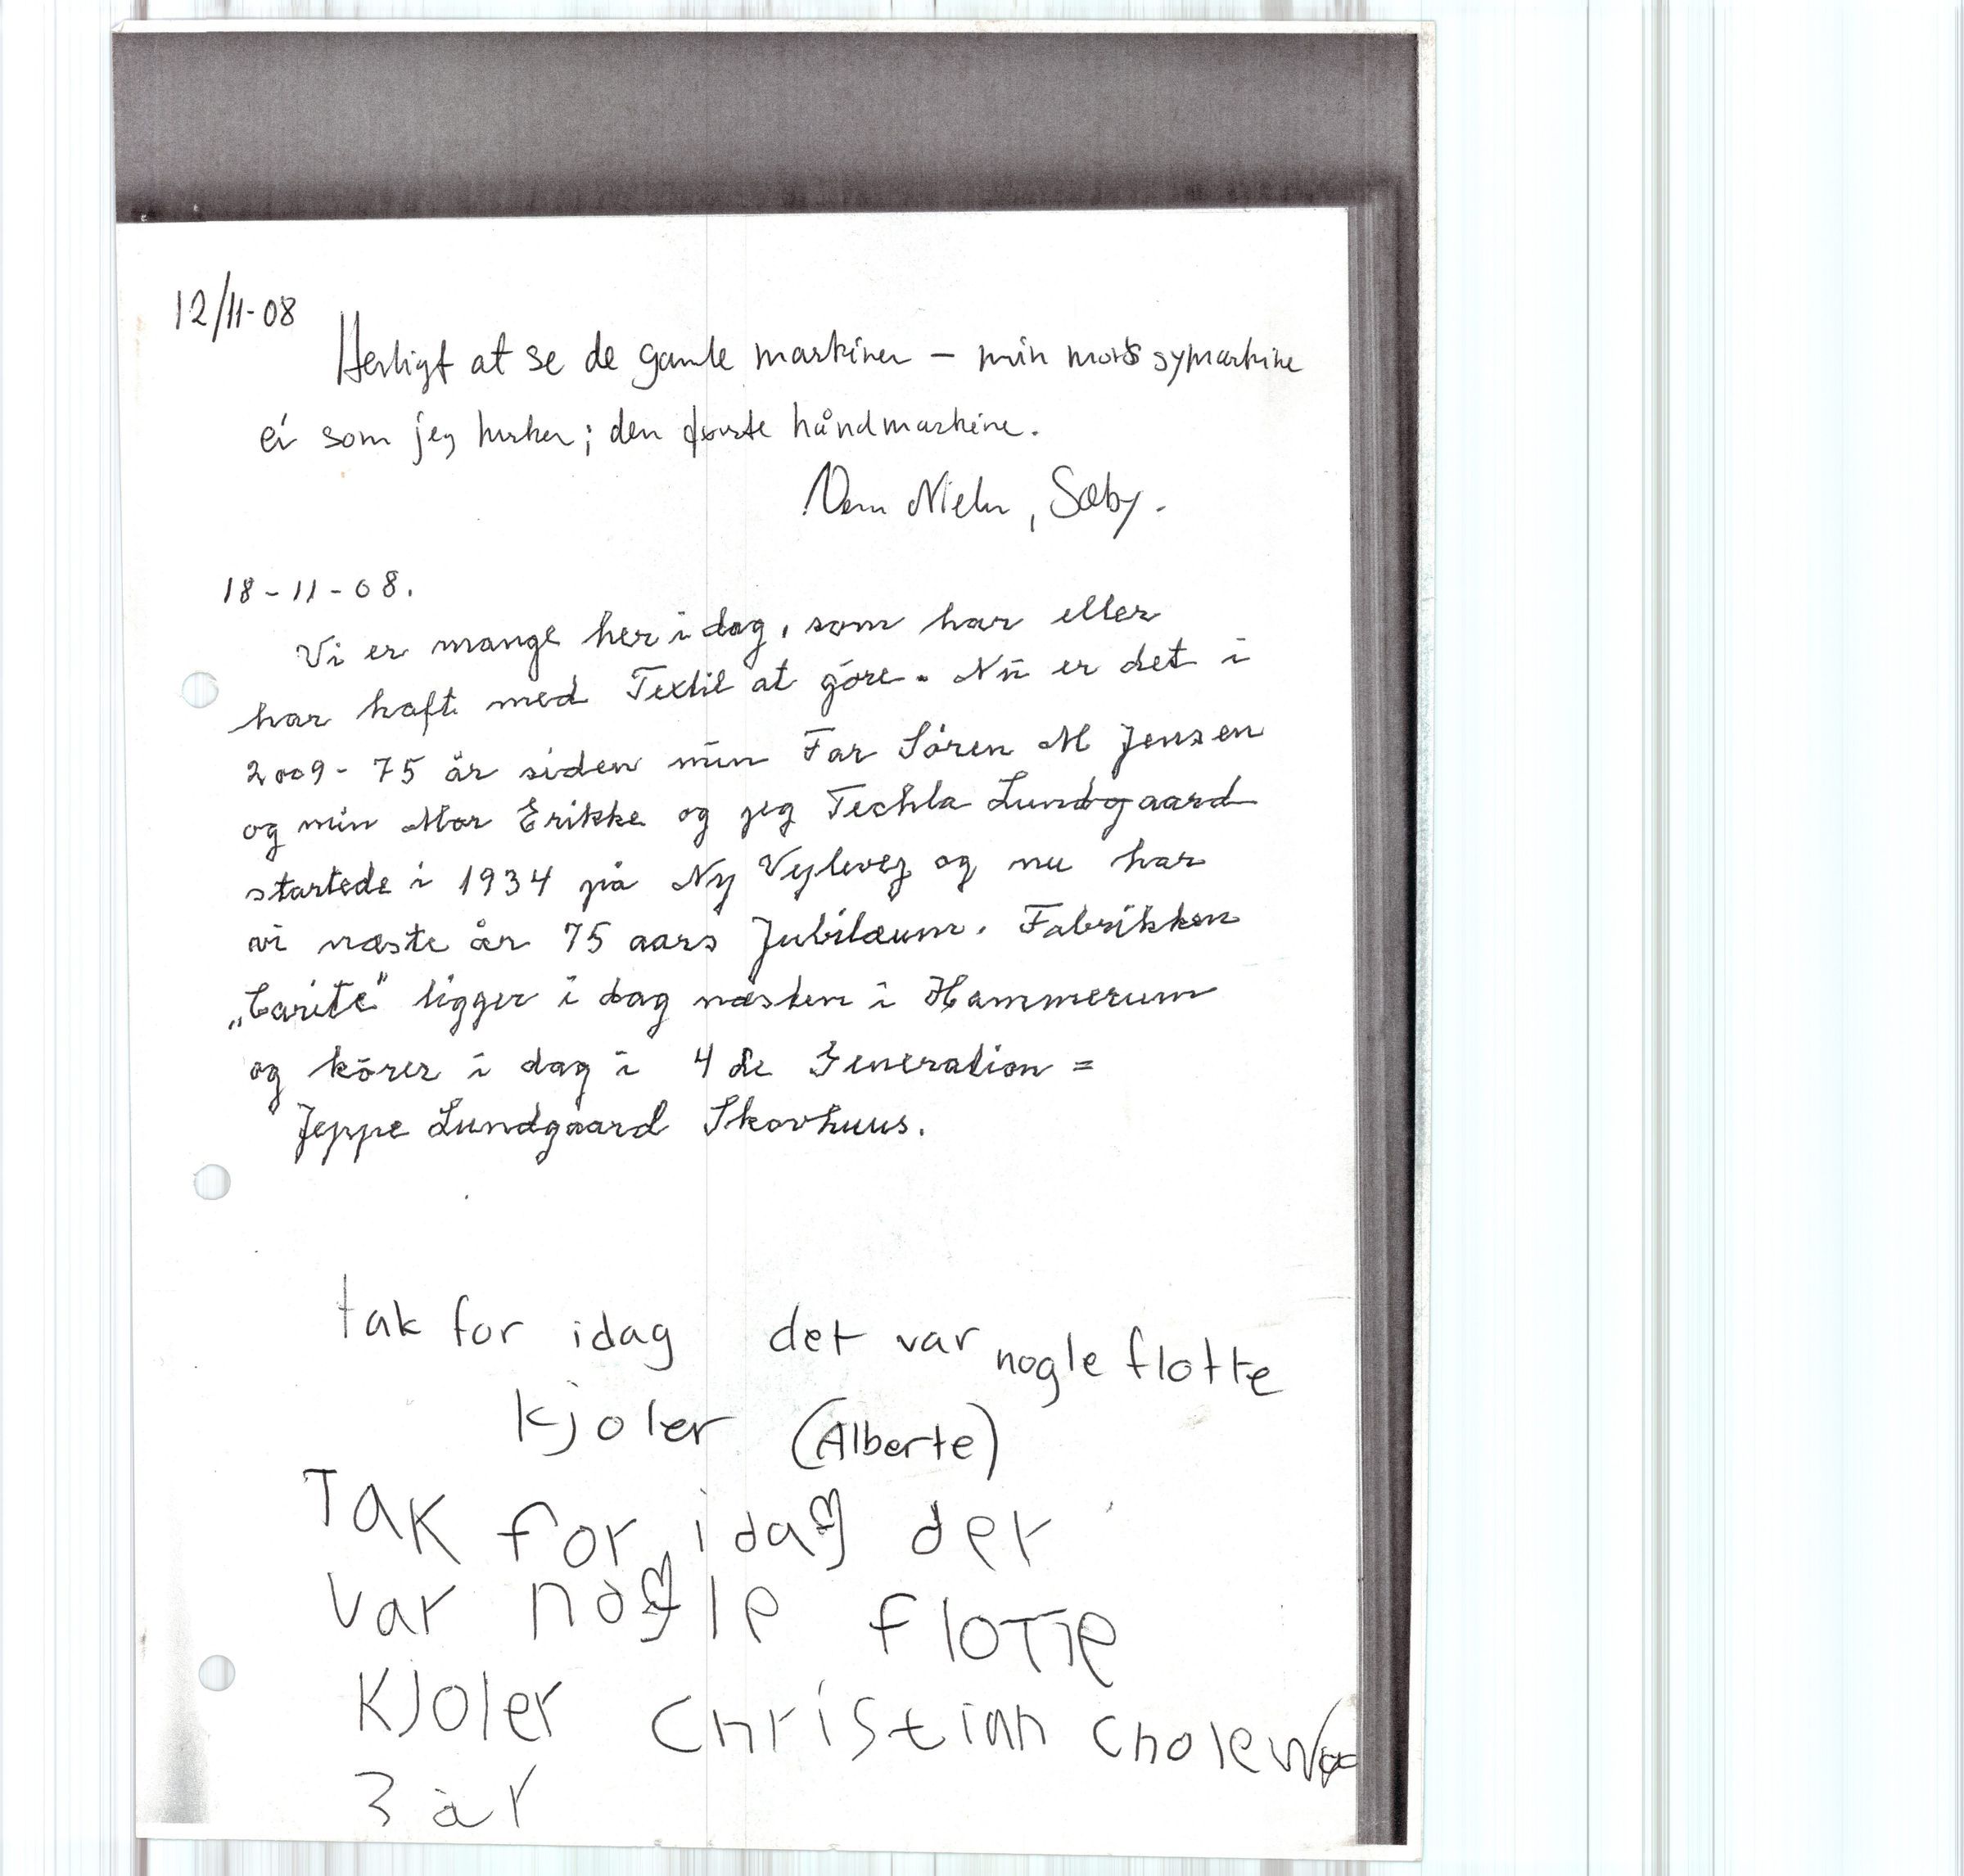 12/11-08
Herligt at se de gamle maskiner – min mors symaskine
som jeg husker; den første håndmaskine.
Sæby.
18-11-08.
Vi er mange her i dag, som har eller
har haft med Textil at göre. Nū er det i
2009- 75 år siden min Far Sören M Jensen
og min Mor Erikke og jeg Techla Lundgaard
startede i 1934 på Ny Vejlevej og nu har
vi næste år 75 aars Jubilæum. Fabrikken
„Carite" ligger i dag næsten i Hammerum
og körer i dag i 4 de Generation =
Jeppe Lundgaard Skovhuus.
tak for idag det var nogle flotte
kjoler (Alberte)
TaK for idag det
var nogle floTTe
KJoler Christian Cholewa
3 år